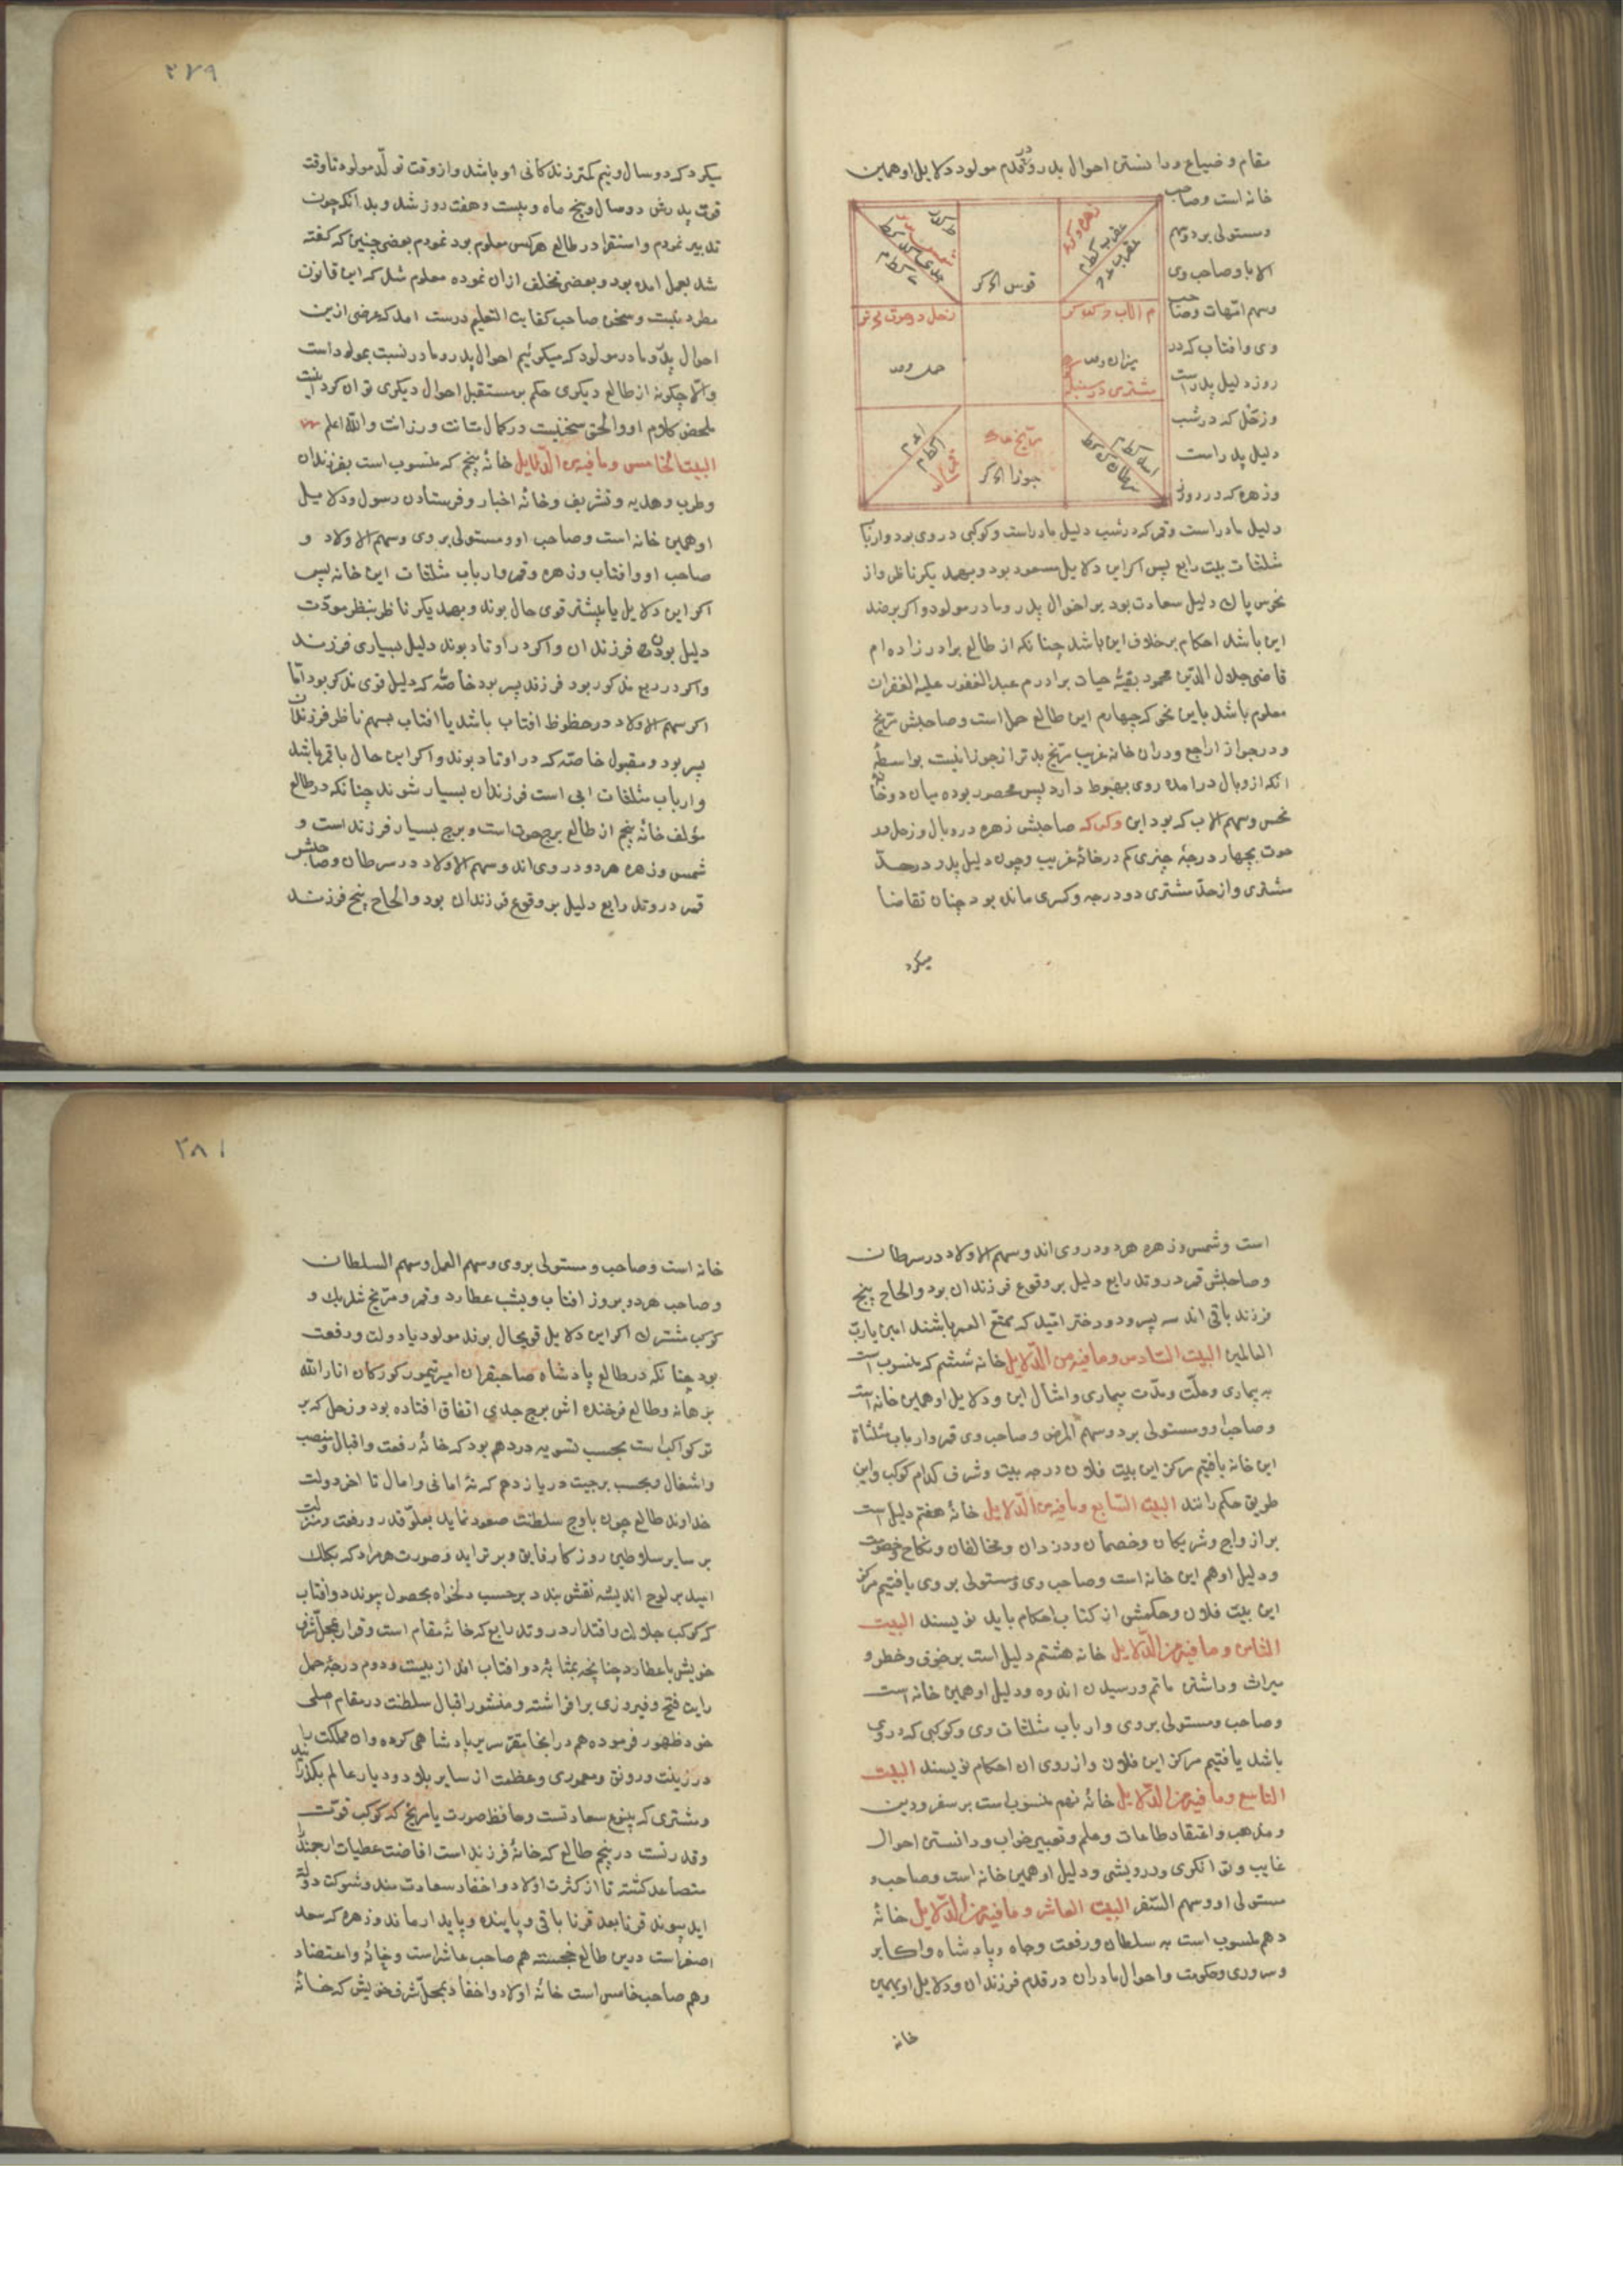 مقام و ضیاع و دانستن احوال پدر و مولود دلایل او همین
خانه است و صاحب
و مستولی برو و سهم
الابا و صاحب وی
و سهم امّهات و صاحب
وی و افتاب که در
روز دلیل پدر است
و زحل که در شب
دلیل پدر است
و زهره که در روز
قوس
میزان
حمل
مشتری در سنبله
جوزا
دلیل مادر است و قمر که در شب دلیل مادر است و کوکبی در وی بود و ارباب
مثلثات بیت رابع پس اگر این دلایل مسعود بود و بهمدیگر ناظر و از
نحوس پاک دلیل سعادت بود بر احوال پدر و مادر مولود و اگر بر ضد
این باشد احکام بر خلاف این باشد چنانکه از طالع برادر زاده ام
قاضی جلال الدین محمود بقیهٔ حیات برادرم عبد الغفور علیه الغفران
معلوم باشد باین نحو که چهارم این طالع حمل است و صاحبش مریخ
و در جوزا راجع و دران خانه غریب مریخ بدتر از جوزا نیست بواسطهٔ
انکه از وبال در امده روی بهبوط دارد پس محصور بوده میان دو خانهٔ
نحس و سهم الاب که بود این صاحبش زهره در وبال و زحل در
حوت بچهار درجهٔ چیزی کم در خانهٔ غریب و چون دلیل پدر در حدّ
مشتری و از حدّ مشتری دو درجه و کسری مانده بود چنان تقاضا
میکرد
۲۷۹
میکرد که دو سال و نیم کمتر زندکانی او باشد و از وقت تولّد مولود تا وقت
فوت پدرش دو سال و پنج ماه و بیست و هفت روز شد و بدانکه چون
تدبیر نمودم و استقرا در طالع هر کس معلوم بود نمودم بعضی چنین که کفته
شد بعمل امده بود و بعضی تخلف ازان نموده معلوم شد که این قانون
مطرد نیست و سخن صاحب کفایت التعلیم درست امد که غرضی ازین
احوال پدر و مادر مولود که میکوئیم احوال پدر و مادر نسبت بمولود است
و الا چکونه از طالع دیکری حکم بر مستقبل احوال دیکری توان کرد اینست
ملخص کلام او و الحق سخنیست در کمال متانت و رزانت و الله اعلم
البیت الخامس و ما فیه من الدلایل خانهٔ پنجم که منسوب است بفرزندان
و طرب و هدیه و تشریف و خانهٔ اخبار و فرستادن رسول و دلایل
او همین خانه است و صاحب او و مستولی بر وی و سهم الاولاد و
صاحب او و افتاب و زهره و قمر و ارباب مثلثات این خانه پس
اکر این دلایل یا بیشتر قوی حال بوند و بهمدیکر ناظر بنظر مودّت
دلیل بودن فرزندان و اکر در اوتاد بوند دلیل بسیاری فرزند
و اکر در ربع مذکور بود فرزند پسر بود خاصّه که دلیل قوی مذکر بود امّا
اکر سهم الاولاد در حظوظ افتاب باشد یا افتاب بسهم ناظر فرزندان
پسر بود و مقبول خاصّه که در اوتاد بوند و اکر این حال با قمر باشد
و ارباب مثلثات ابی است فرزندان بسیار شوند چنانکه در طالع
مؤلف خانهٔ پنجم از طالع برج حوت است و برج بسیار فرزند است و
شمس و زهره هر دو در وی اند و سهم الاولاد در سرطان و صاحبش
قمر در وتد رابع دلیل بر وقوع فرزندان بود و الحاح پنج فرزند
است و شمس و زهره هر دو در وی اند و سهم الاولاد در سرطان
و صاحبش قمر در وتد رابع دلیل بر وقوع فرزندان بود و الحاح پنج
فرزند باقی اند سه پسر و دو دختر امّید که ممتّع العمر باشند امین یا ربّ
العالمین البیت السّادس و ما فیه من الدّلایل خانهٔ ششم که منسوب است
به بیماری و علّت و مدّت بیماری و امثال این و دلایل او همین خانه است
و صاحب او و مستولی برو و سهم المرض و صاحب وی قمر و ارباب مثلثاة
این خانه یافتیم مرکز این بیت فلان درجه بیت و شرف کدام کوکب و این
طریق حکم رانند البیت السّابع و ما فیه من الدّلایل خانهٔ هفتم دلیل است
بر ازواج و شریکان و خصمان و دزدان و مخالفان و نکاح و خصومت
و دلیل او هم این خانه است و صاحب وی و مستولی بر وی یافتیم مرکز
این بیت فلان و حکمش از کتاب احکام باید نویسند البیت
الثامن و ما فیه من الدّلایل خانه هشتم دلیل است بر خوف و خطر و
میراث و داشتن ماتم و رسیدن اندوه و دلیل او همین خانه است
و صاحب و مستولی بر وی و ارباب مثلثات وی و کوکبی که در وی
باشد یافتیم مرکز این فلان و از روی ان احکام نویسند البیت
التاسع و ما فیه من الدّلایل خانهٔ نهم منسوب است بر سفر و دین
و مذهب و اعتقاد طاعات و علم و تعبیر خواب و دانستن احوال
غایب و توانکری و درویشی و دلیل او همین خانه است و صاحب و
مستولی او و سهم السّفر البیت العاشر و ما فیه من الدّلایل خانهٔ
دهم منسوب است به سلطان و رفعت و جاه و پادشاه و اکابر
و سروری و حکومت و احوال مادران در قدم فرزندان و دلایل او همین
خانه
۲۸۱
خانه است و صاحب و مستولی بر وی و سهم العمل و سهم السلطان
و صاحب هر دو بروز افتاب و بشب عطارد و قمر و مریخ شریک و
کوکب مشترک اکر این دلایل قویحال بوند مولود با دولت و رفعت
بود چنانکه در طالع پادشاه صاحبقران امیر تیمور کورکان انار الله
برهانه و طالع فرخنده اش برج جدی اتفاق افتاده بود و زحل که بر
تر کواکب است بحسب تسویه در دهم بود که خانهٔ رفعت و اقبال و منصب
و اشغال و بحسب برجیت در یازدهم که خانهٔ امانی و امال تا اخر دولت
خداوند طالع چون باوج سلطنت صعود نماید بعلوّ قدر و رفعت و منزلت
بر سایر سلاطین روزکار فایق و برتر اید و صورت هر مراد که بکلک
امید بر لوح اندیشه نقش بندد بر حسب دلخواه بحصول پیوندد و افتاب
که کوکب جلال و اقتدار در وتد رابع که خانهٔ مقام است و قرار بمحلّ شرف
خویش با عطارد چنانچه بمثابهٔ دو افتاب اند از بیست و دوم درجهٔ حمل
رایت فتح و فیروزی بر افراشته و منشور اقبال سلطنت در مقام اصلی
خود ظهور فرموده هم در انجا مقرّ سریر پادشاهی کرده و ان مملکت را
در زینت و رونق و معموری و عظمت از سایر بلاد و دیار عالم بکذرانید
و مشتری که ینبوع سعادتست و حافظ صورت با مریخ که کوکب قوّت
و قدرتست در پنجم طالع که خانهٔ فرزند است افاضت عطیات ارجمند
متصاعد کشته تا از کثرت اولاد و احفاد سعادت مند و شوکت و دولة
ابد پیوند قرنا بعد قرنا باقی و پاینده و پایدار ماند و زهره که سعد
اصغر است درین طالع خجسته هم صاحب عاشر است و خانهٔ و اعتضاد
و هم صاحب خامس است خانهٔ اولاد و احفاد بمحلّ شرف خویش که خانهٔ